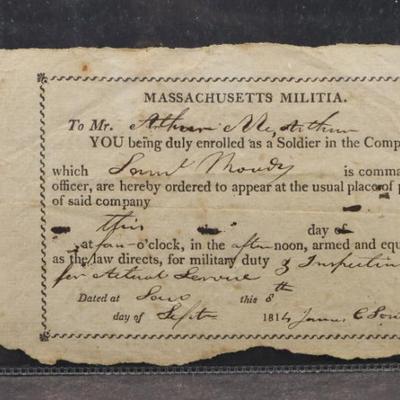 MASSACHUSETTS MILITIA.
To Mr. Arthur McArthur
YOU being duly enrolled as a Soldier in the Comp
which Saml Moody is comma
officer, are hereby ordered to appear at the usual place of p
of said company
this day of
at four o'clock, in the after noon, armed and equ
as the law directs, for military duty & Inspectin
for Actual Service
Dated at this 8th
day of Septr 1814 James C